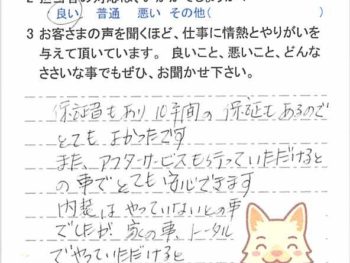 良い 普通 悪い その他(
3 お客さまの声を聞くほど、仕事に情熱とやりがいを
与えて頂いています。良いこと、悪いこと、どんな
ささいな事でもぜひ、お聞かせ下さい。
保証書もあり 10年間の 保証もあるので
とても よかったです
また、アフターサービスも行っていただけると
の事でとても安心できます
内装は やっていないとの事
でしたが 家の事、トータル
でやっていただけると